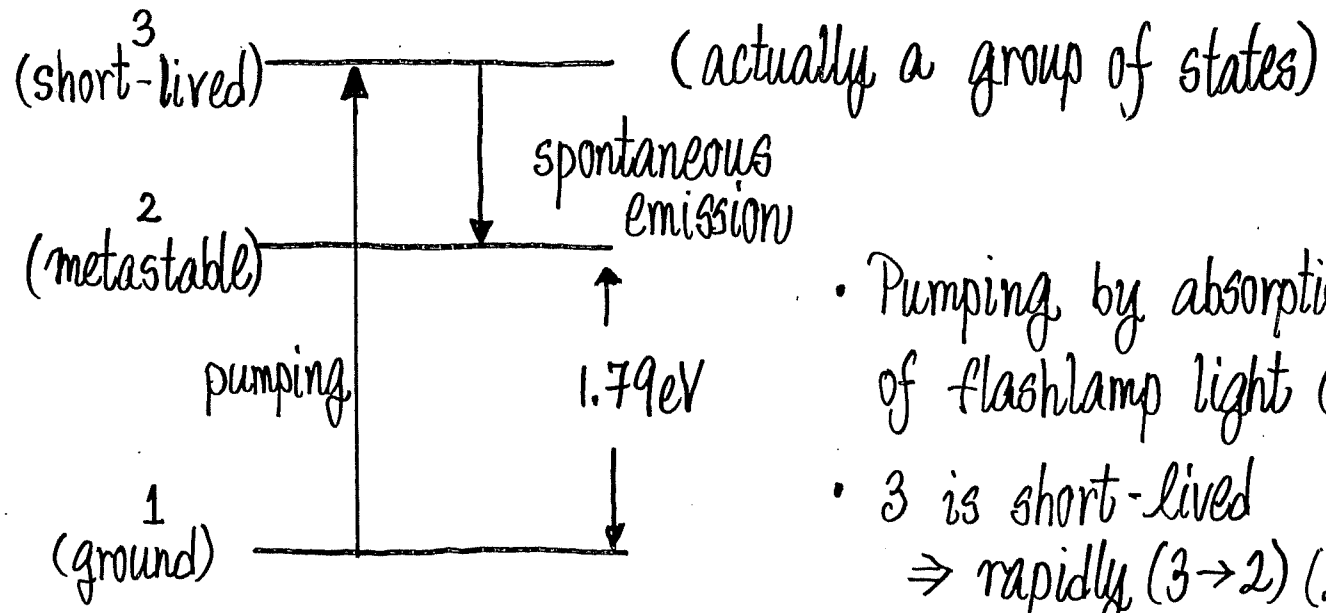 3
(short-lived)
(actually a group of states)
spontaneous
emission
2
(metastable)
pumping
1.79eV
1
(ground)
• Pumping by absorpti
of flashlamp light (
• 3 is short-lived
⇒ rapidly (3→2) (